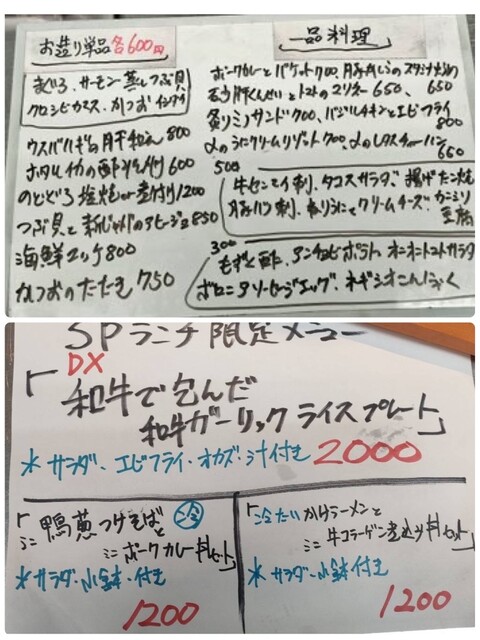 お造り単品各600円
まぐろ、サーモン、蒸しつぶ貝
クロシビカマス、かつお
ウスバハギの肝和え 800
ホタルイカの酢 600
のどぐろ塩焼or煮付け1200
つぶ貝と 新じゃがのアヒージョ 850
海鮮ユッケ800
かつおのたたき 750
一品料理
ポークカレーとバケット700、豚
トマトのマリネー 650、 650
サンド700、バジルチキンとエビフライ
800
クリームリゾット700、
660
500
牛センマイ刺、タコスサラダ、揚げたこ焼
豚ハツ刺、ねりうにとクリームチーズ、カニミソ
豆腐
300
もずく酢、アンチョビポテト オニオントマトサラダ
ボロニアソーセージエッグ、ネギシオこんにゃく
SPランチ限定メニュー
DX
「和牛で包んだ
和牛ガーリックライスプレート」
*サラダ・エビフライ・オカズ・汁付き 2000
「ミニ鴨葱つけそばと 冷
ミニポークカレー丼セット」
*サラダ・小鉢・付き
1200
「冷たいかけラーメンと
ミニ牛コラーゲン煮込み丼セット」
*サラダ・小鉢付き
1200